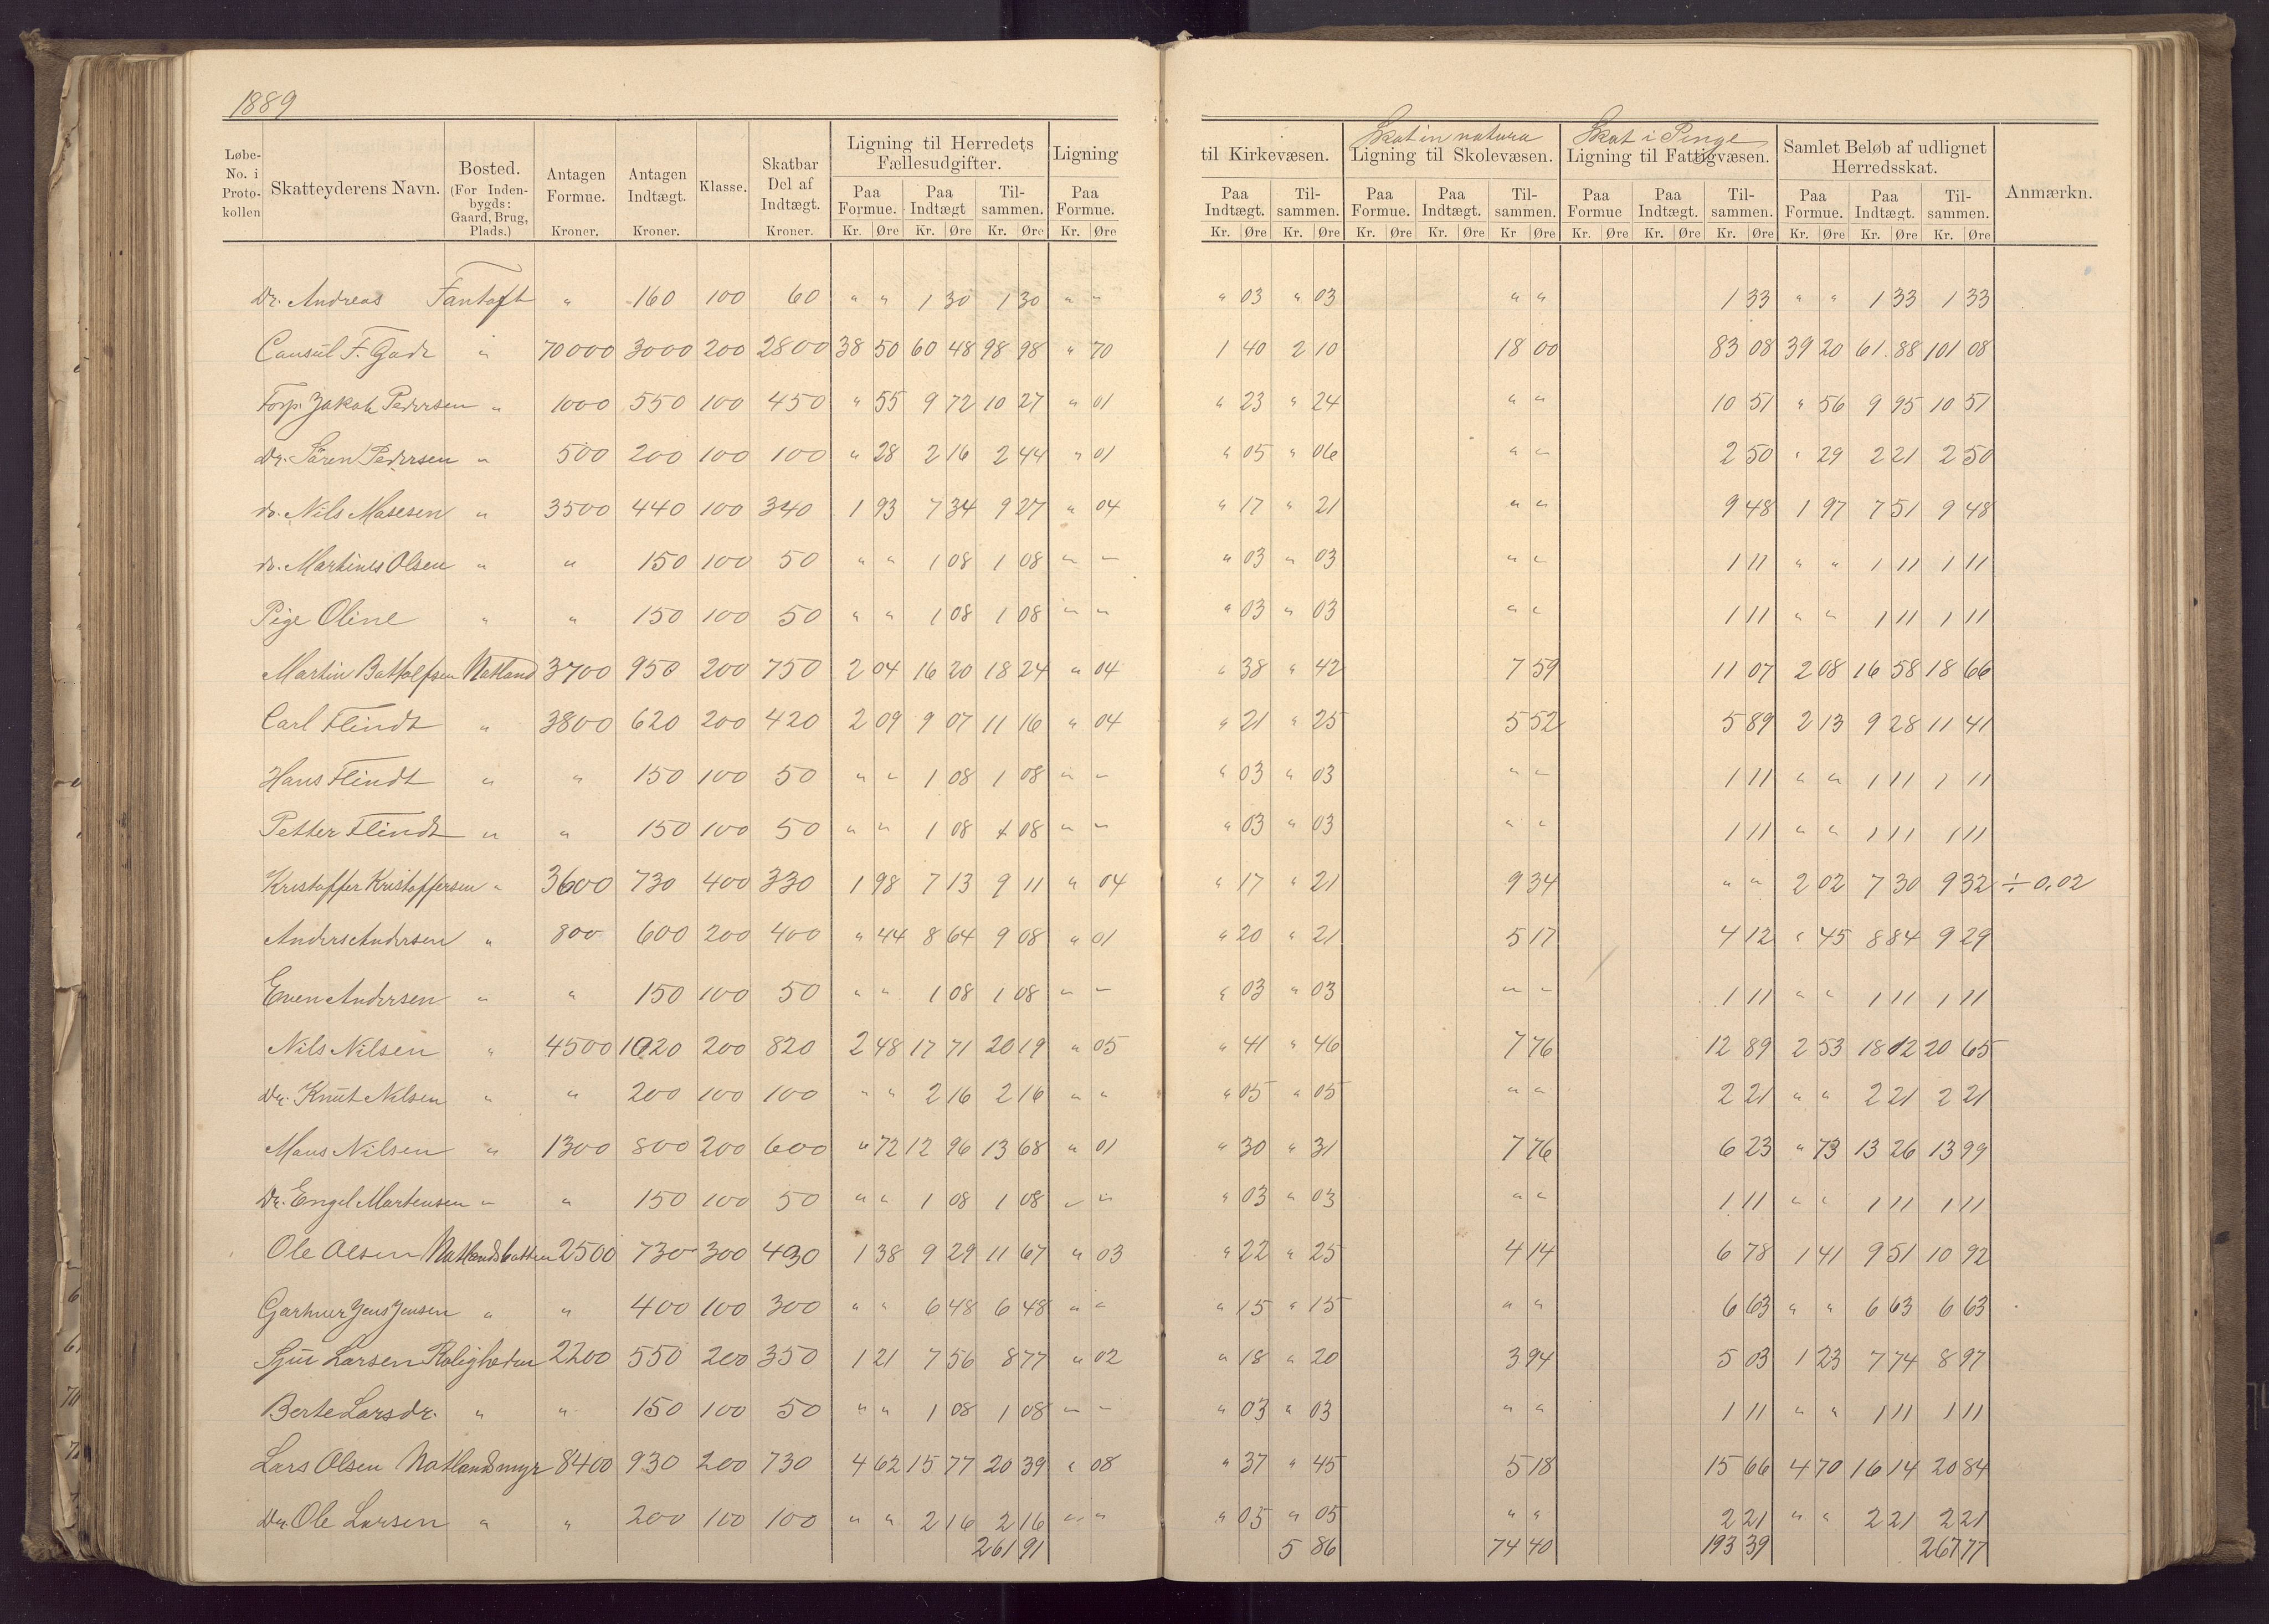 1889
Løbe-No. i Proto-kollen | Skatteyderens Navn. | Bosted. (For Inden-bygds: Gaard, Brug, Plads.) | Antagen Formue. Kroner. | Antagen Indtægt. Kroner. | Klasse. | Skatbar Del af Indtægt. Kroner. | Ligning til Herredets Fællesudgifter. Paa Formue. Kr. Øre | Paa Indtægt Kr. Øre | Til-sammen. Kr. Øre | Ligning Paa Formue. Kr. Øre | til Kirkevæsen. Paa Indtægt. Kr. Øre | Til-sammen. Kr. Øre | Skat in natura Ligning til Skolevæsen. Paa Formue. Kr. Øre | Paa Indtægt. Kr. Øre | Til-sammen. Kr Øre | Skat i Penge Ligning til Fattigvæsen. Paa Formue Kr. Øre | Paa Indtægt. Kr. Øre | Til-sammen. Kr. Øre | Samlet Beløb af udlignet Herredsskat. Paa Formue. Kr. Øre | Paa Indtægt. Kr. Øre | Til-sammen. Kr. Øre | Anmærkn.
Dr. Andreas Fantoft " 160 100 60 " " 1 30 1 30 " " " 03 " 03 " " 1 33 " " 1 33 1 33
Consul F. Gade " 70000 3000 200 2800 38 50 60 48 98 98 " 70 1 40 2 10 18 00 83 08 39 20 61.88 101 08
Forp. Jakob Pedersen " 1000 550 100 450 " 55 9 72 10 27 " 01 " 23 " 24 " " 10 51 " 56 9 95 10 51
Dr. Sören Pedersen " 500 200 100 100 " 28 2 16 2 44 " 01 " 05 " 06 " " 2 50 " 29 2 21 2 50
Dr. Nils Mosesen " 3500 440 100 340 1 93 7 34 9 27 " 04 " 17 " 21 " " 9 48 1 97 7 51 9 48
Dr. Martines Olsen " " 150 100 50 " " 1 08 1 08 " " " 03 " 03 " " 1 11 " " 1 11 1 11
Pige Oline " " 150 100 50 " " 1 08 1 08 " " " 03 " 03 " " 1 11 " " 1 11 1 11
Martin Botholfsen Natland 3700 950 200 750 2 04 16 20 18 24 " 04 " 38 " 42 7 59 11 07 2 08 16 58 18 66
Carl Flindt " 3800 620 200 420 2 09 9 07 11 16 " 04 " 21 " 25 5 52 5 89 2 13 9 28 11 41
Hans Flindt " " 150 100 50 " " 1 08 1 08 " " " 03 " 03 " " 1 11 " " 1 11 1 11
Petter Flindt " " 150 100 50 " " 1 08 1 08 " " " 03 " 03 " " 1 11 " " 1 11 1 11
Kristoffer Kristoffersen " 3600 730 400 330 1 98 7 13 9 11 " 04 " 17 " 21 9 34 " " 2 02 7 30 9 32 ÷ 0,02
Anders Andersen " 800 600 200 400 " 44 8 64 9 08 " 01 " 20 " 21 5 17 4 12 " 45 8 84 9 29
Even Andersen " " 150 100 50 " " 1 08 1 08 " " " 03 " 03 " " 1 11 " " 1 11 1 11
Nils Nilsen " 4500 1020 200 820 2 48 17 71 20 19 " 05 " 41 " 46 7 76 12 89 2 53 18 12 20 65
Dr. Knut Nilsen " " 200 100 100 " " 2 16 2 16 " " " 05 " 05 " " 2 21 " " 2 21 2 21
Mons Nilsen " 1300 800 200 600 " 72 12 96 13 68 " 01 " 30 " 31 7 76 6 23 " 73 13 26 13 99
Dr. Engel Martensen " " 150 100 50 " " 1 08 1 08 " " " 03 " 03 " " 1 11 " " 1 11 1 11
Ole Olsen 2500 730 300 430 1 38 9 29 11 67 " 03 " 22 " 25 4 14 6 78 1 41 9 51 10 92
Gartner Jens Jensen " " 400 100 300 " " 6 48 6 48 " " " 15 " 15 " " 6 63 " " 6 63 6 63
Sjur Larsen Roligheden 2200 550 200 350 1 21 7 56 8 77 " 02 " 18 " 20 3 94 5 03 1 23 7 74 8 97
Berte Larsdr. " " 150 100 50 " " 1 08 1 08 " " " 03 " 03 " " 1 11 " " 1 11 1 11
Lars Olsen Natlandsmyr 8400 930 200 730 4 62 15 77 20 39 " 08 " 37 " 45 5 18 15 66 4 70 16 14 20 84
Dr. Ole Larsen " " 200 100 100 " " 2 16 2 16 " " " 05 " 05 " " 2 21 " " 2 21 2 21
261 91 5 86 74 40 193 39 267 77